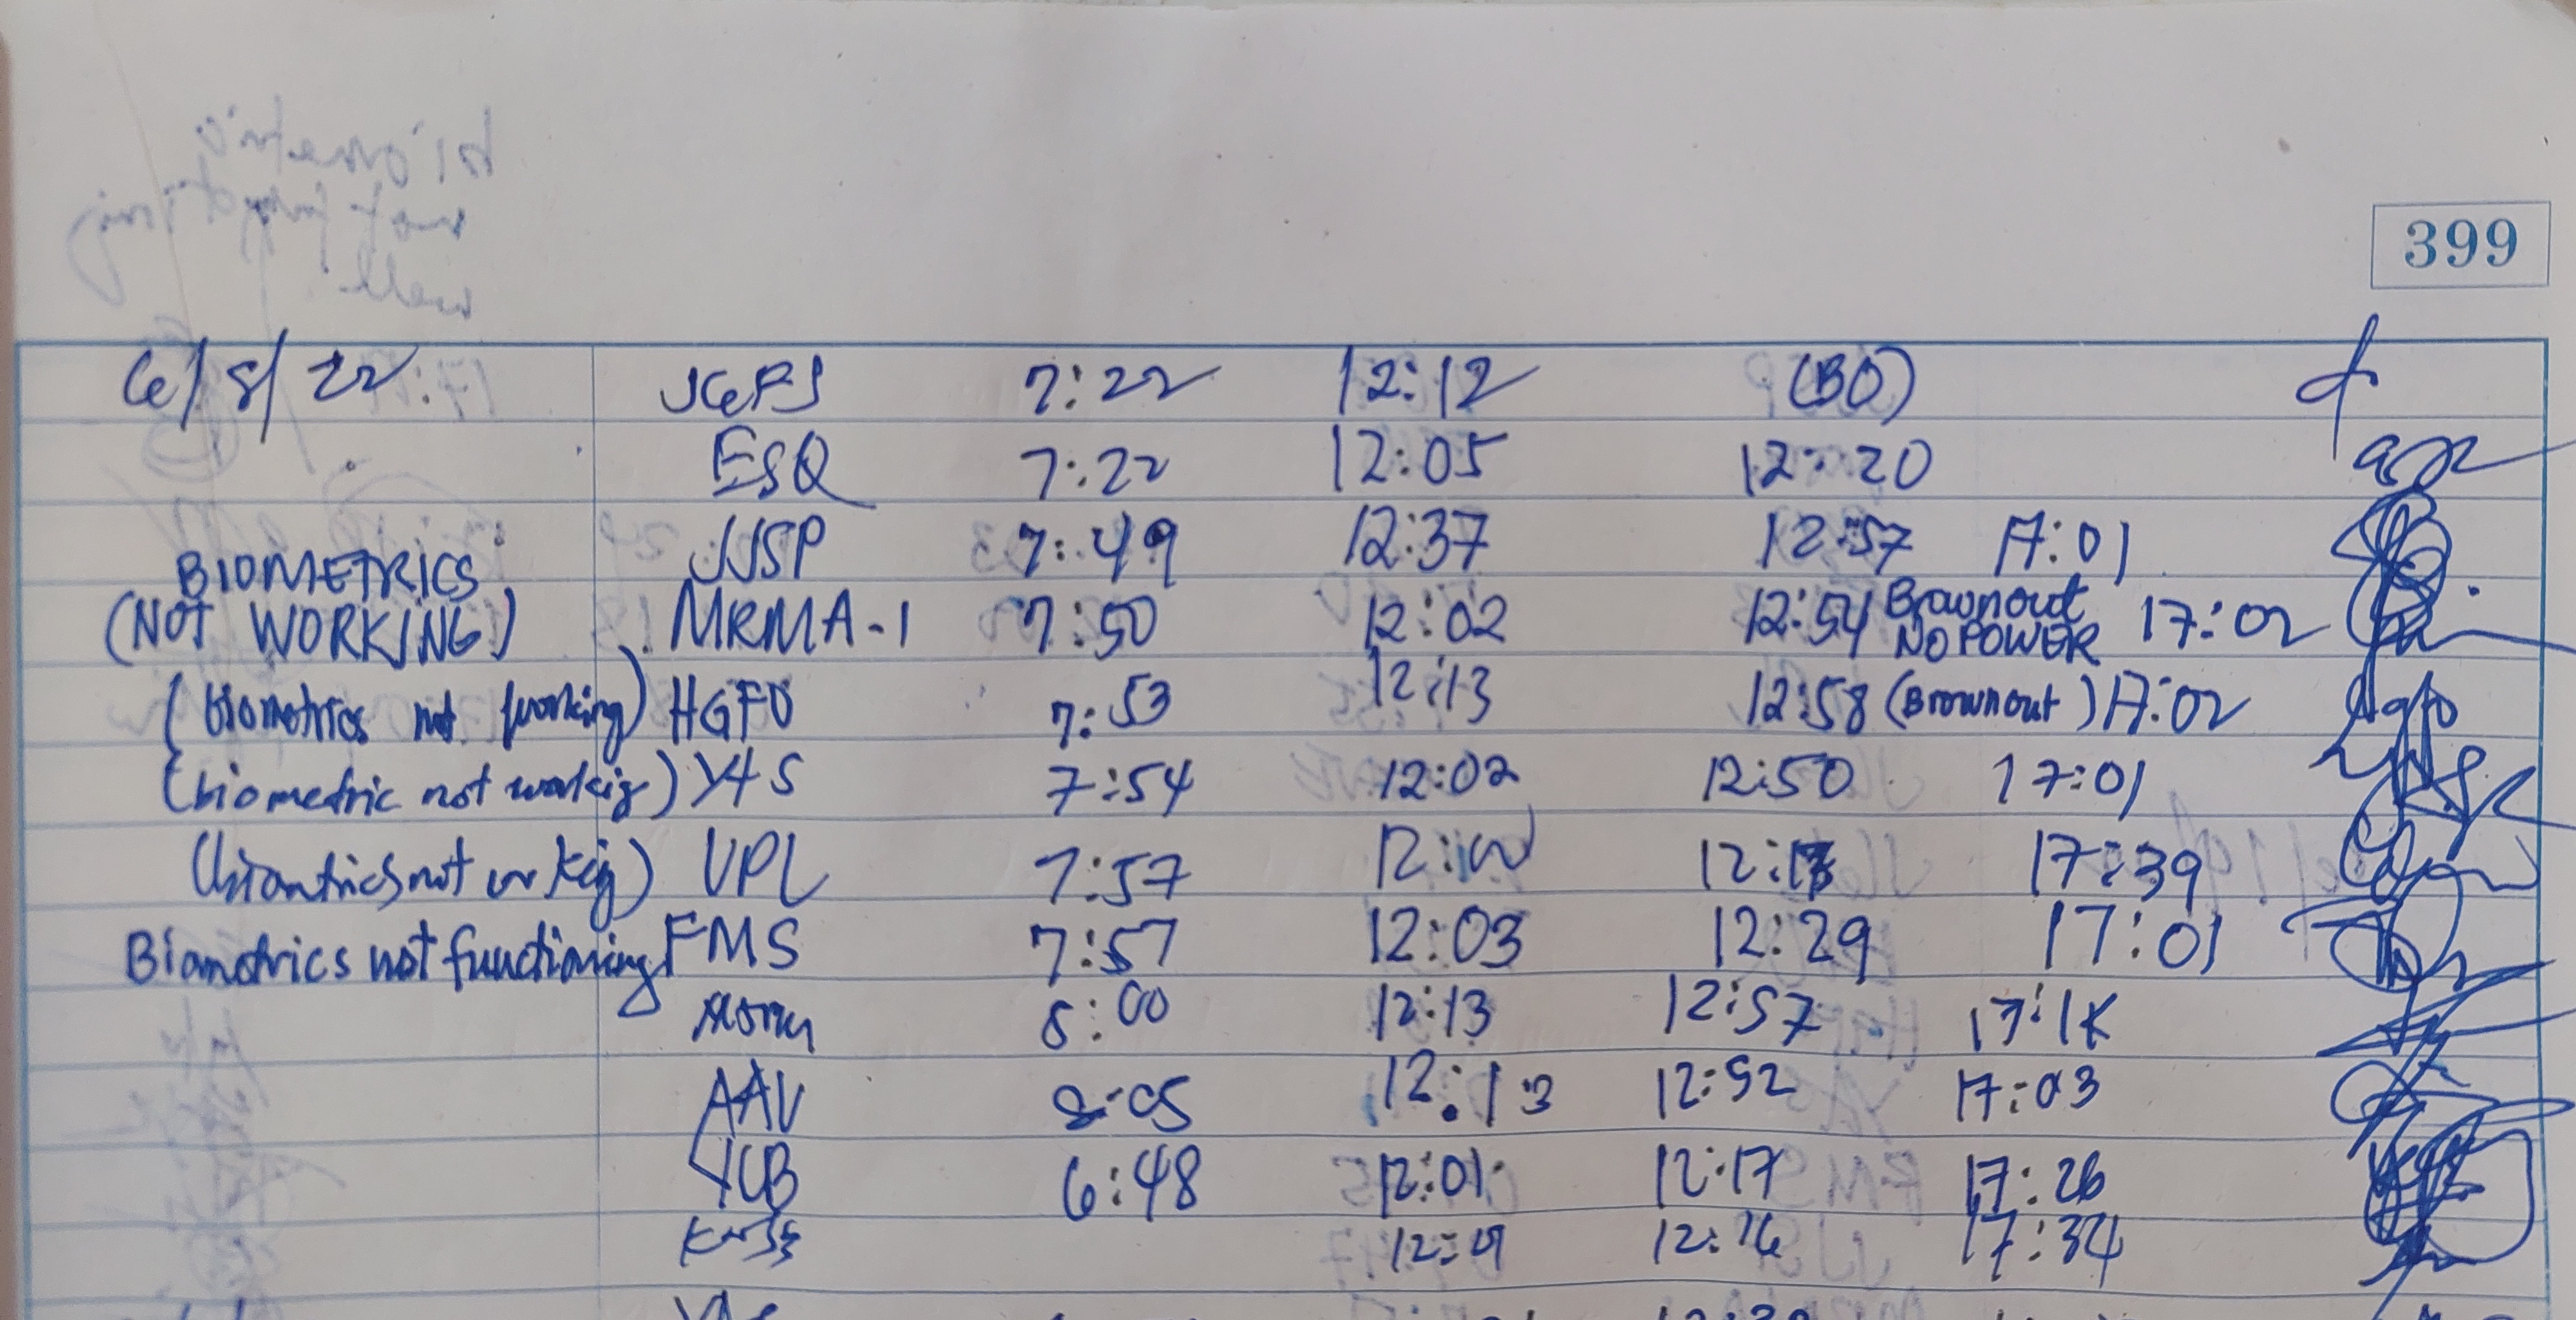 399
6/8/22 JGFS 7:22 12:12 (BO)
ESQ 7:22 12:05 12:20
JJSP 7:49 12:37 12:57 17:01
BIOMETRICS
(NOT WORKING) MRMA-1 7:50 12:02 12:54 Brownout NO POWER 17:02
(biometrics not working) HGFO 7:53 12:13 12:58 (Brownout) 17:02
(biometric not workig) YAS 7:54 12:02 12:50 17:01
VPL 7:57 17:39
Biometrics not functioning FMS 7:57 12:03 12:29 17:01
8:00 12:13 12:57
AAV 8:05 12:13 12:52 17:03
YCB 6:48 12:01 12:17 17:26
12:16 17:34